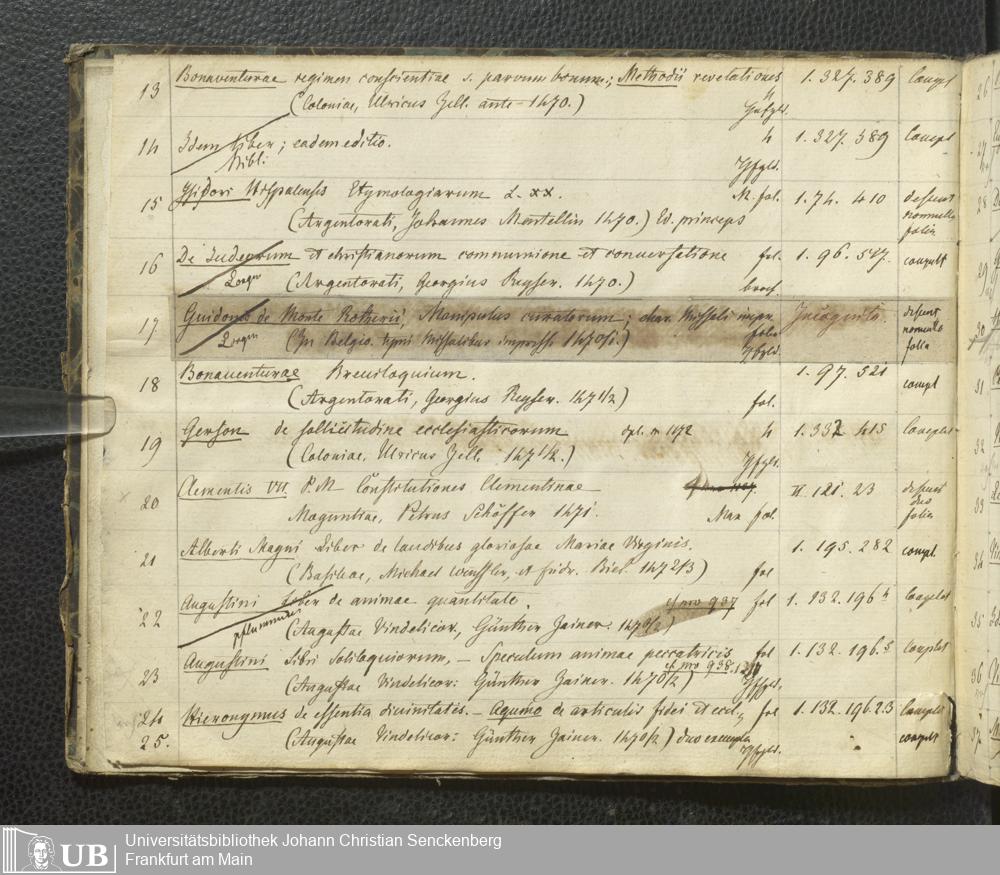 13 Bonaventurae regimen conscientiae s. parvum bonum; Methodii revelationes 1. 327. 389 compl
(Coloniae, Ulricus Zell. ante 1470.) 4
14 Idem liber; eadem editio. 4 1. 327. 389 compl
15 Isidori Hispalensis Etymologiarum L. XX. M. fol. 1. 74. 410 desunt nonnulla folia
(Argentorati, Johannes Mentellin 1470.) Ed. princeps
16 De Judeorum et christianorum communione et conversatione fol. 1. 96. 517. complt
(Argentorati, Georgius Reyser. 1470.) broch.
17 Guidonis de Monte Rotherii, Manipulus curatorum; char. Missali impr. Incognita. desunt nonnulla folia
(In Belgio. typis Missalibus impress. 1470/1.) folio
18 Bonaventurae Breviloquium. 1. 97. 521 compl
(Argentorati, Georgius Reyser. 1471/2) fol.
19 Gerson de sollicitudine ecclesiasticorum 4 1. 332 415 complet
(Coloniae, Ulricus Zell. 1471/2.)
20 Clementis VII. P. M. Constitutiones Clementinae II. 121. 23 desunt duo folia
Maguntiae, Petrus Schöffer 1471. Max fol.
21 Alberti Magni Liber de laudibus gloriosae Mariae Virginis. 1. 195. 282 compl.
(Basileae, Michael Wenssler, et Fridr. Biel. 1472/3) fol
22 Augustini Liber de animae quantitate. cf. nro 937 fol 1. 132. 196 complet
(Augustae Vindelicor., Günther Zainer. 1470/2)
23 Augustini Libri Soliloquiorum, – Speculum animae peccatricis fol 1. 132. 196.5 complet
(Augustae Vindelicor: Günther Zainer. 1470/2) cf. nro 938.
24 Hieronymus de essentia divinitatis. – Aquino de articulis fidei et eccl., fol 1. 132. 196.2.3 complet
25. (Augustae Vindelicor: Günther Zainer. 1470/2) duo exempla complt
UB
Universitätsbibliothek Johann Christian Senckenberg
Frankfurt am Main